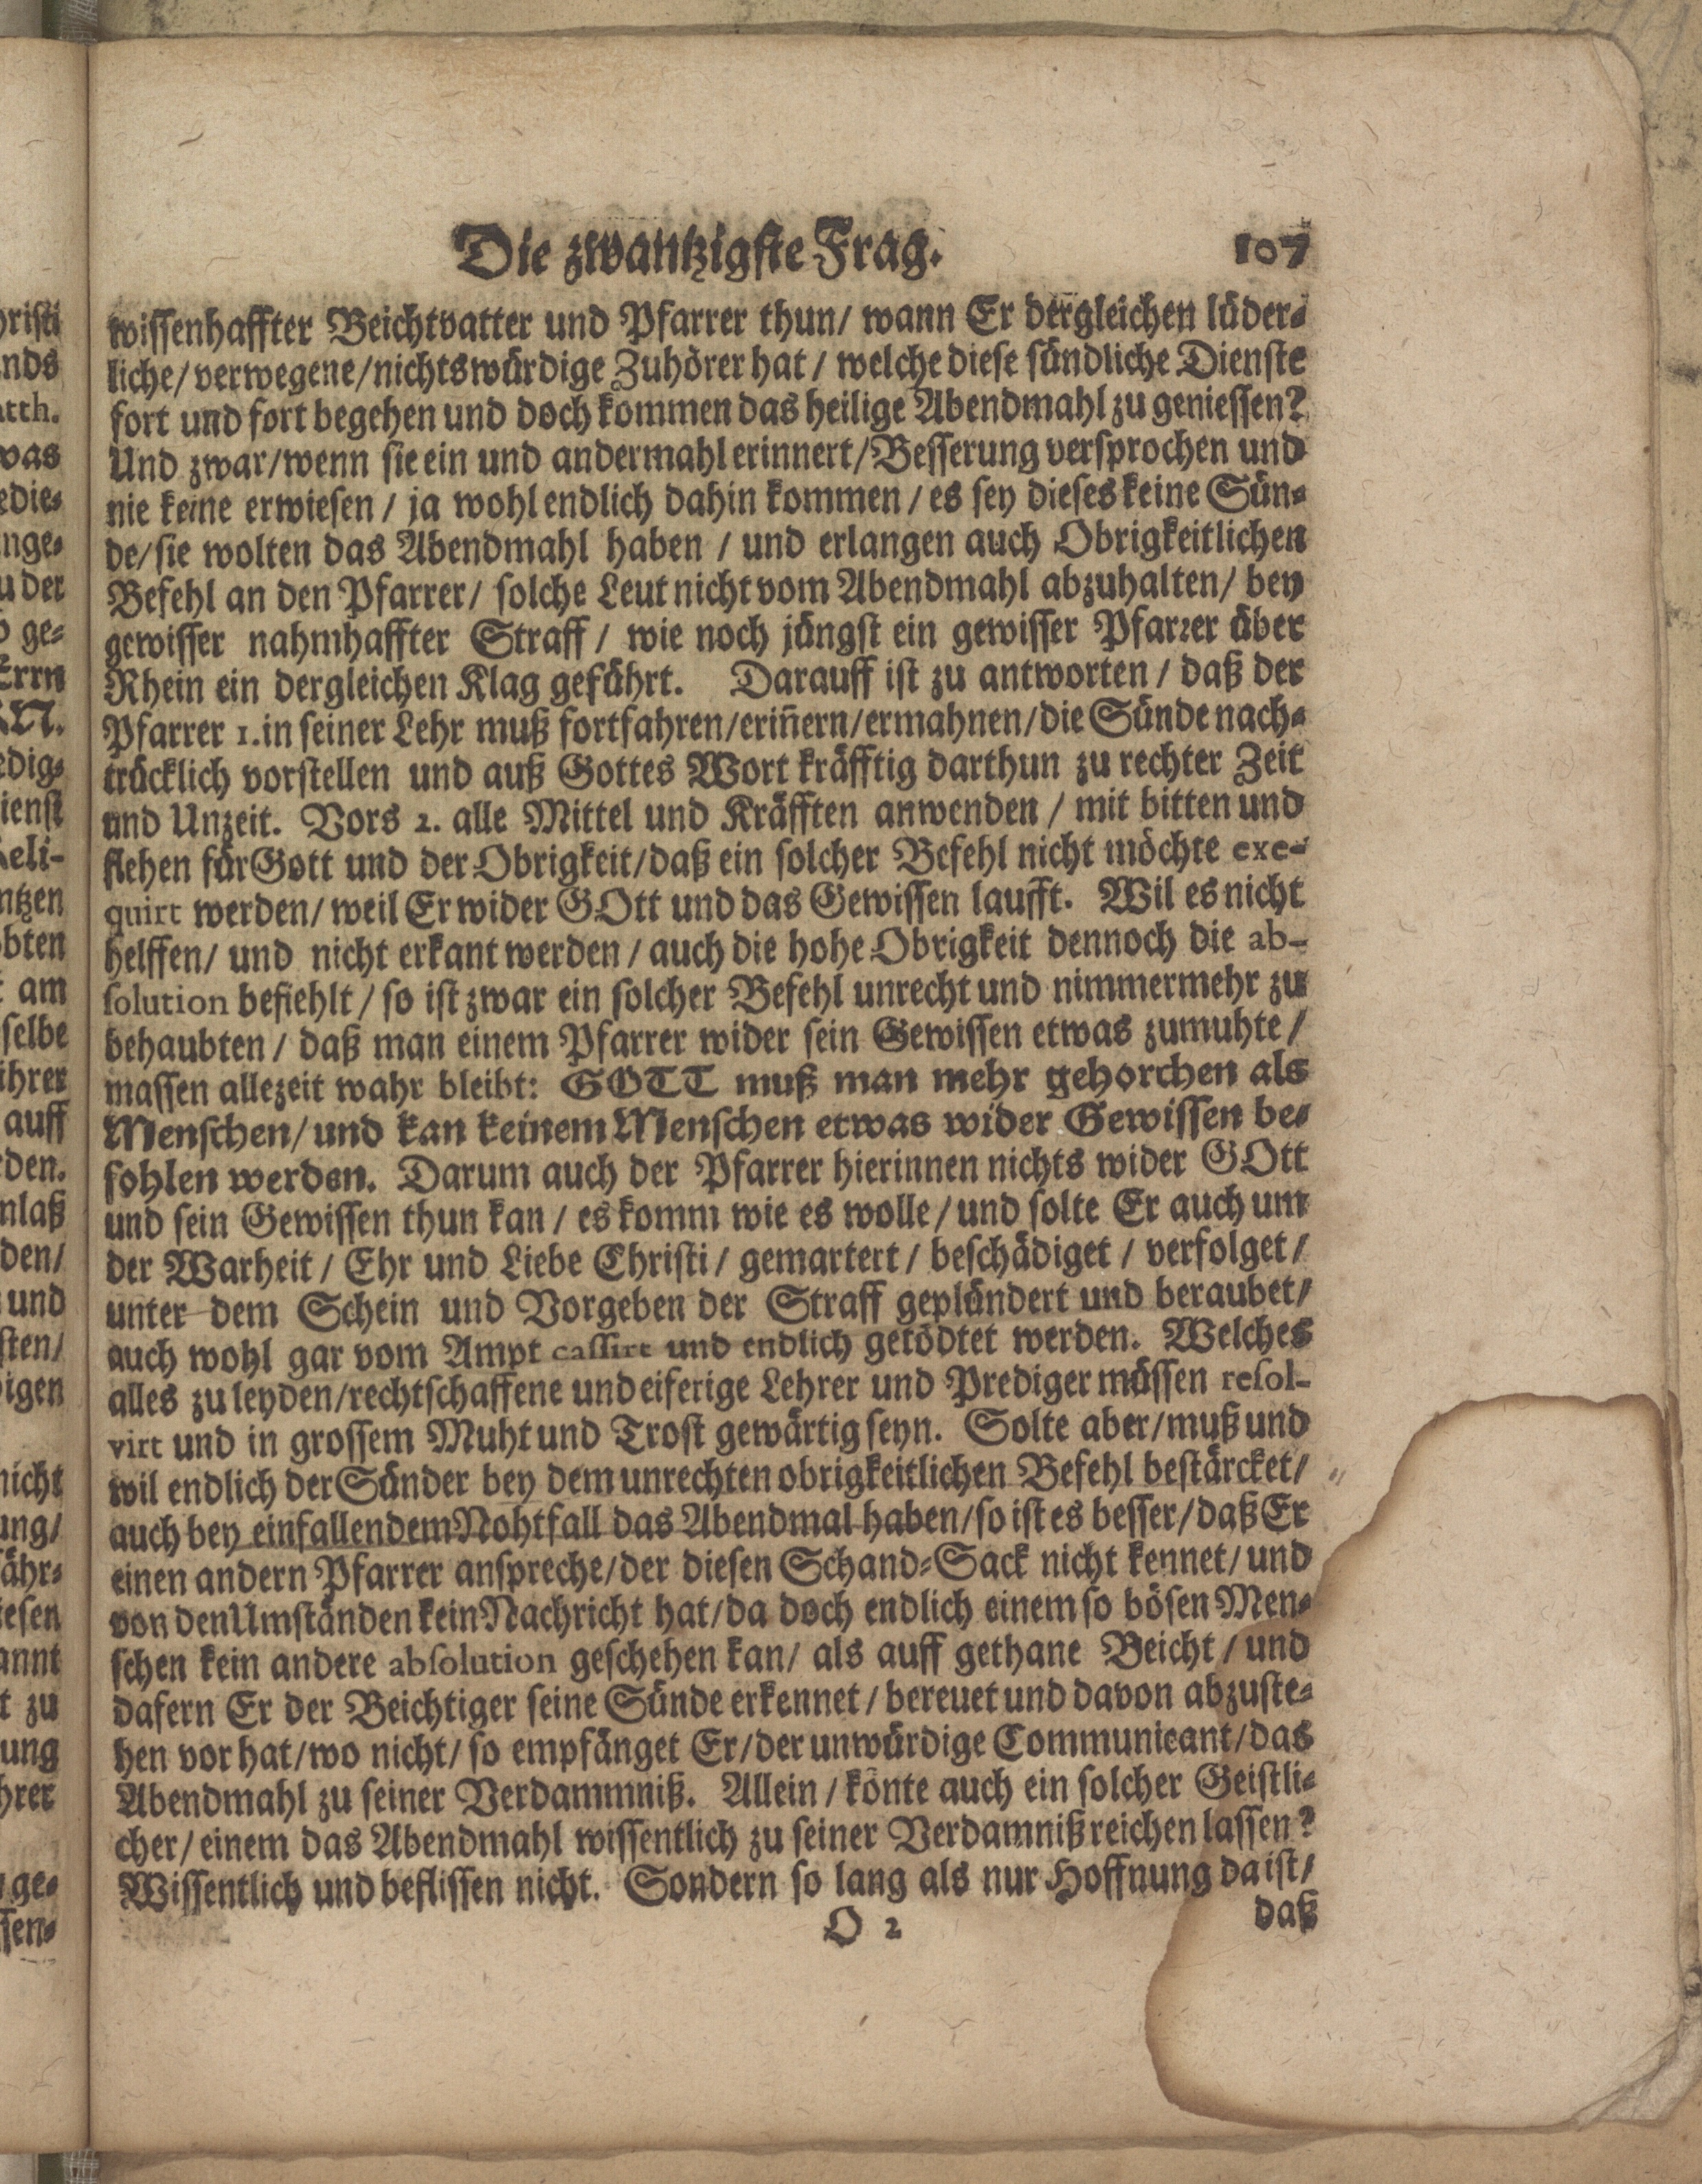 Die zwantzigste Frag. 107
wissenhaffter Beichtvatter und Pfarrer thun/ wann Er dergleichen lüder-
liche/ verwegene/nichtswürdige Zuhörer hat / welche diese sündliche Dienste
fort und fort begehen und doch kommen das heilige Abendmahl zu geniessen?
Und zwar/wenn sie ein und andermahl erinnert/Besserung versprochen und
nie keine erwiesen / ja wohl endlich dahin kommen / es sey dieses keine Sün-
de/sie wolten das Abendmahl haben / und erlangen auch Obrigkeitlichen
Befehl an den Pfarrer/ solche Leut nicht vom Abendmahl abzuhalten/ bey
gewisser nahmhaffter Straff / wie noch jüngst ein gewisser Pfarrer über
Rhein ein dergleichen Klag geführt. Darauff ist zu antworten / daß der
Pfarrer 1. in seiner Lehr muß fortfahren/erin̄ern/ermahnen/die Sünde nach-
trücklich vorstellen und auß Gottes Wort kräfftig darthun zu rechter Zeit
und Unzeit. Vors 2. alle Mittel und Kräfften anwenden / mit bitten und
flehen für Gott und der Obrigkeit/daß ein solcher Befehl nicht möchte exe-
quirt werden/ weil Er wider GOtt und das Gewissen laufft. Wil es nicht
helffen/ und nicht erkant werden / auch die hohe Obrigkeit dennoch die ab-
solution befiehlt / so ist zwar ein solcher Befehl unrecht und nimmermehr zu
behaubten / daß man einem Pfarrer wider sein Gewissen etwas zumuhte /
massen allezeit wahr bleibt: GOTT muß man mehr gehorchen als
Menschen/ und kan keinem Menschen etwas wider Gewissen be-
fohlen werden. Darum auch der Pfarrer hierinnen nichts wider GOtt
und sein Gewissen thun kan / es komm wie es wolle / und solte Er auch um
der Warheit / Ehr und Liebe Christi / gemartert / beschädiget / verfolget /
unter dem Schein und Vorgeben der Straff geplündert und beraubet/
auch wohl gar vom Ampt cassirt und endlich getödtet werden. Welches
alles zu leyden/rechtschaffene und eiferige Lehrer und Prediger müssen resol-
virt und in grossem Muht und Trost gewärtig seyn. Solte aber/muß und
wil endlich der Sünder bey dem unrechten obrigkeitlichen Befehl bestärcket/
auch bey einfallendem Nohtfall das Abendmal haben/so ist es besser/daß Er
einen andern Pfarrer anspreche/der diesen Schand-Sack nicht kennet/ und
von den Umständen kein Nachricht hat/da doch endlich einem so bösen Men-
schen kein andere absolution geschehen kan/ als auff gethane Beicht / und
dafern Er der Beichtiger seine Sünde erkennet / bereuet und davon abzuste-
hen vor hat/wo nicht/ so empfänget Er/der unwürdige Communicant/das
Abendmahl zu seiner Verdammniß. Allein / könte auch ein solcher Geistli-
cher/ einem das Abendmahl wissentlich zu seiner Verdamniß reichen lassen?
Wissentlich und beflissen nicht. Sondern so lang als nur Hoffnung da ist/
O 2 daß